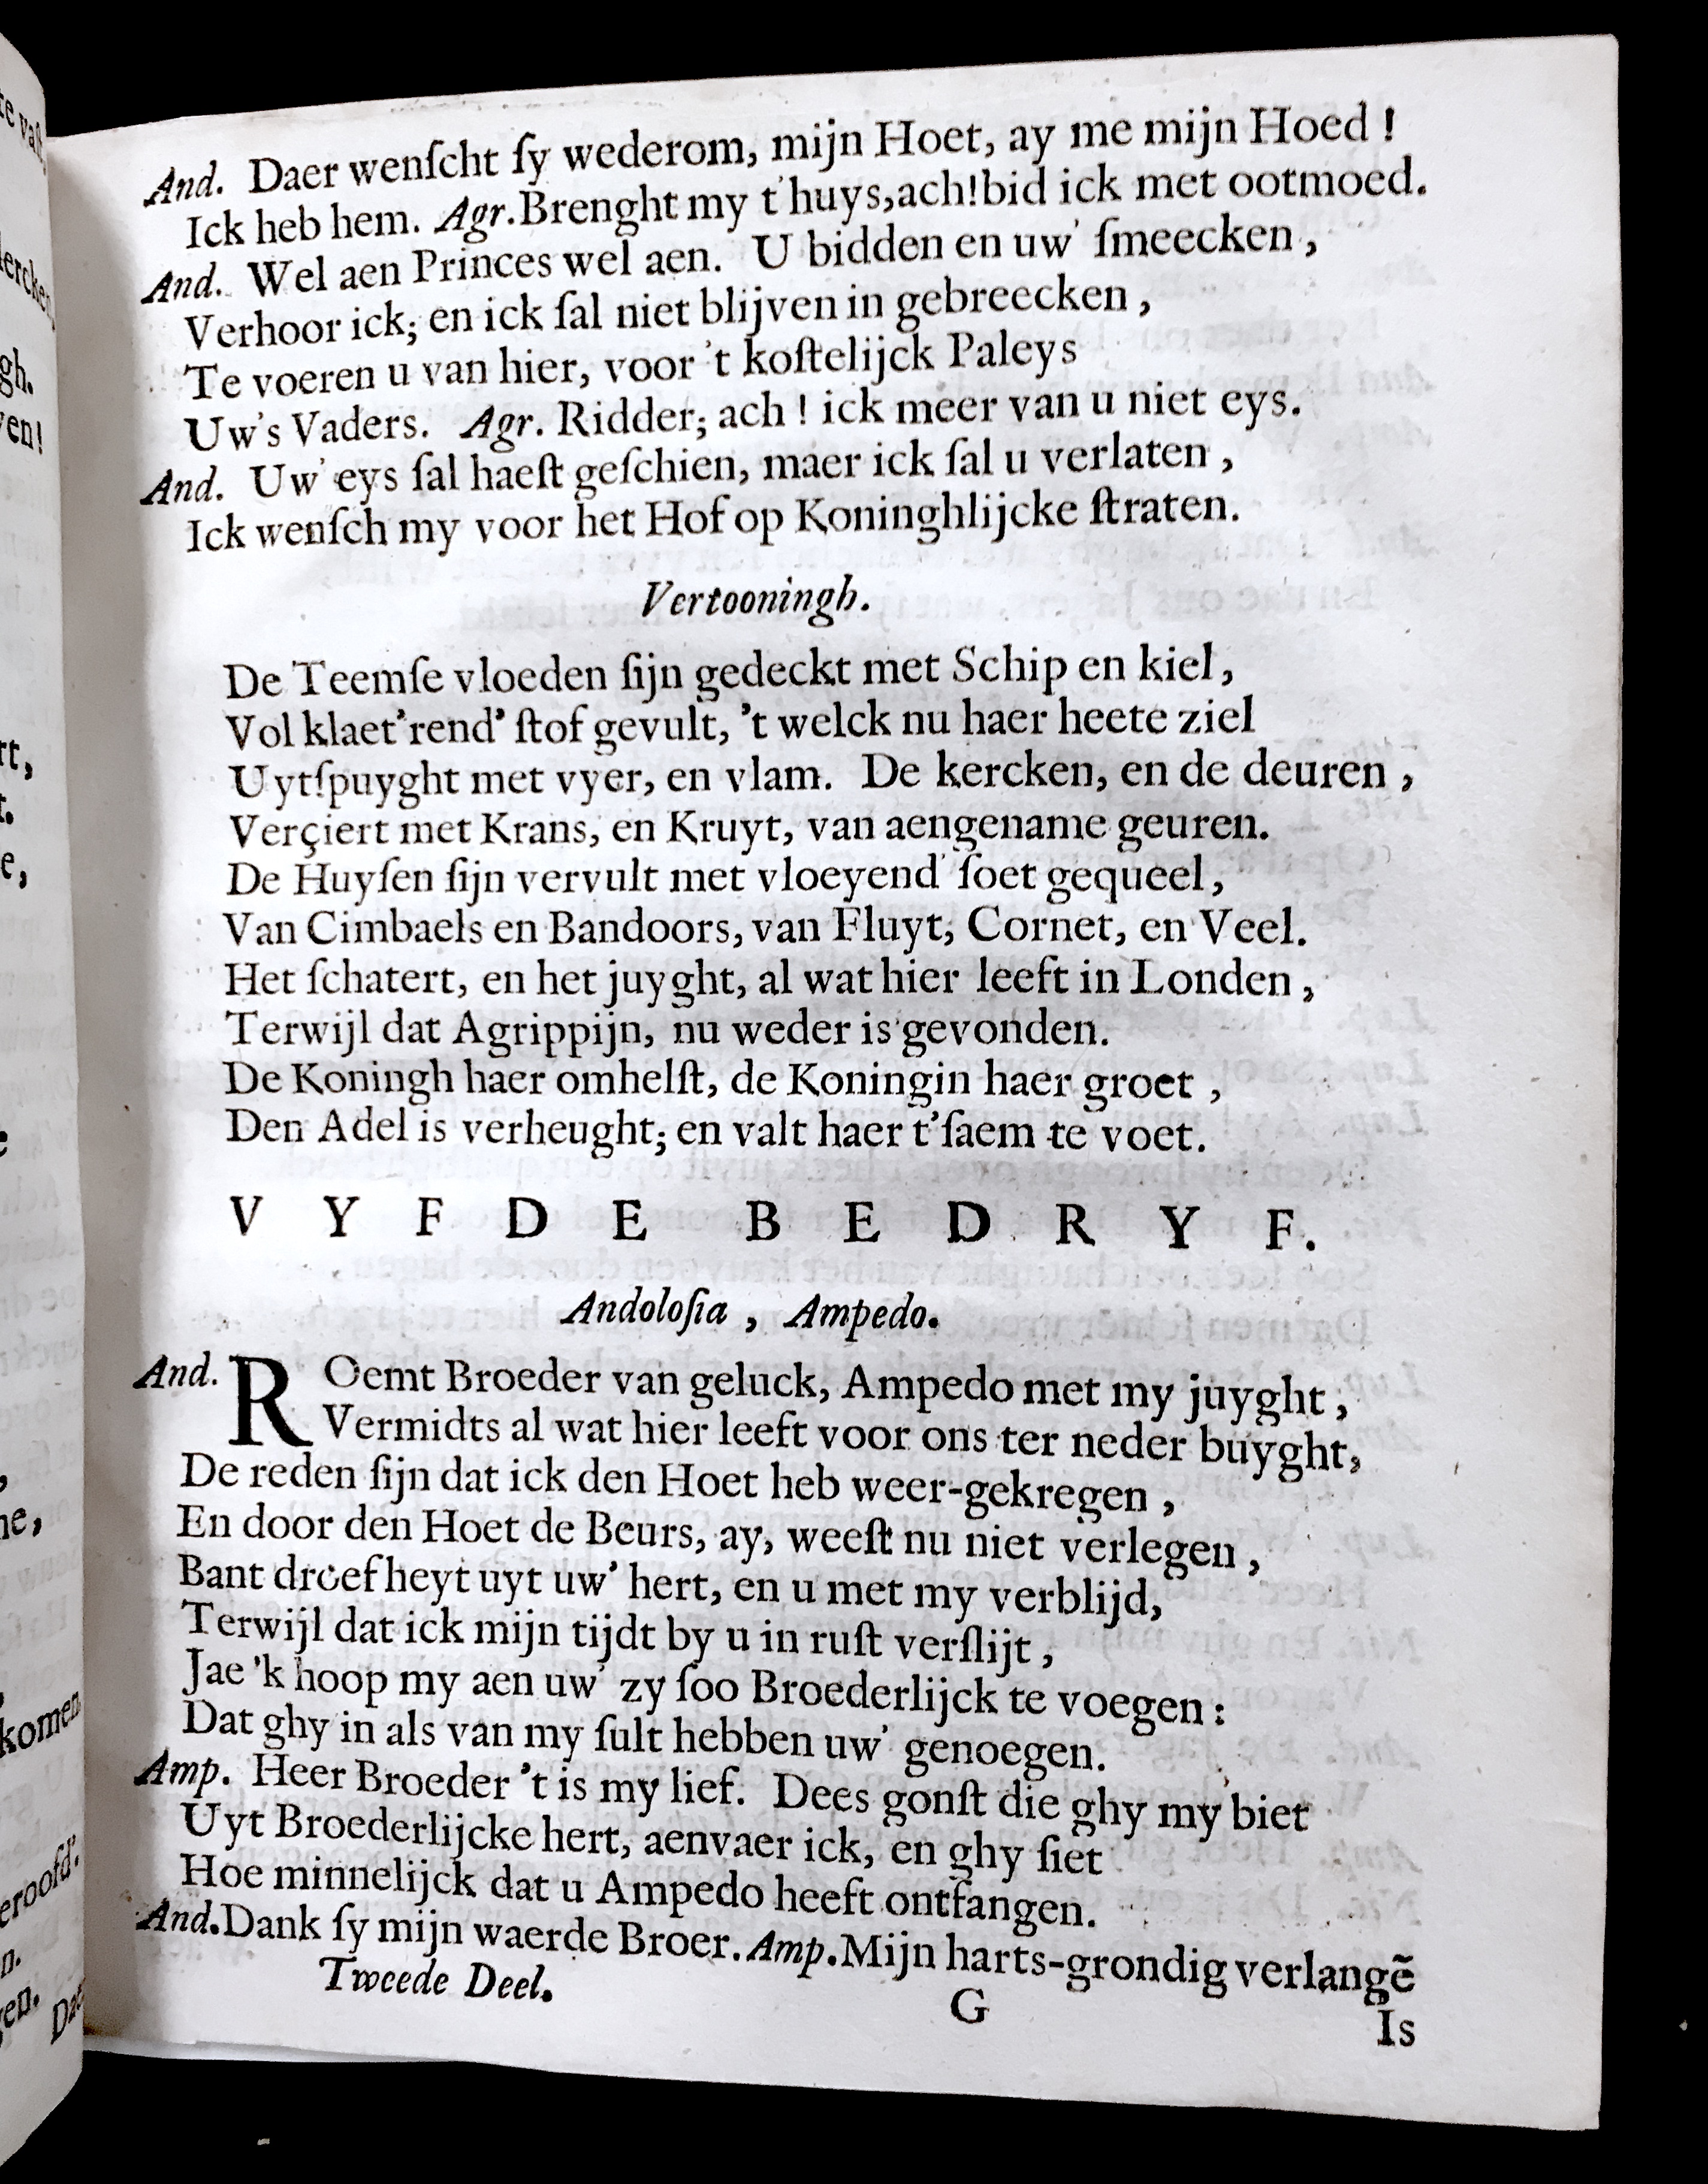 And. Daer wenſcht ſy wederom, mijn Hoet, ay me mijn Hoed !
Ick heb hem. Agr. Brenght my t'huys, ach! bid ick met ootmoed.
And. Wel aen Princes wel aen. U bidden en uw' ſmeecken,
Verhoor ick; en ick ſal niet blijven in gebreecken,
Te voeren u van hier, voor 't koſtelijck Paleys
Uw's Vaders. Agr. Ridder; ach ! ick meer van u niet eys.
And. Uw' eys ſal haeſt geſchien, maer ick ſal u verlaten,
Ick wenſch my voor het Hof op Koninghlijcke ſtraten.
Vertooningh.
De Teemſe vloeden ſijn gedeckt met Schip en kiel,
Vol klaet'rend' ſtof gevult, 't welck nu haer heete ziel
Uytſpuyght met vyer, en vlam. De kercken, en de deuren,
Verçiert met Krans, en Kruyt, van aengename geuren.
De Huyſen ſijn vervult met vloeyend' ſoet gequeel,
Van Cimbaels en Bandoors, van Fluyt, Cornet, en Veel.
Het ſchatert, en het juyght, al wat hier leeft in Londen,
Terwijl dat Agrippijn, nu weder is gevonden.
De Koningh haer omhelſt, de Koningin haer groet,
Den Adel is verheught; en valt haer t'ſaem te voet.
VYFDE BEDRYF.
Andoloſia, Ampedo.
And. ROemt Broeder van geluck, Ampedo met my juyght,
Vermidts al wat hier leeft voor ons ter neder buyght,
De reden ſijn dat ick den Hoet heb weer-gekregen,
En door den Hoet de Beurs, ay, weeſt nu niet verlegen,
Bant droefheyt uyt uw' hert, en u met my verblijd,
Terwijl dat ick mijn tijdt by u in ruſt verſlijt,
Jae 'k hoop my aen uw' zy ſoo Broederlijck te voegen:
Dat ghy in als van my ſult hebben uw' genoegen.
Amp. Heer Broeder 't is my lief. Dees gonſt die ghy my biet
Uyt Broederlijcke hert, aenvaer ick, en ghy ſiet
Hoe minnelijck dat u Ampedo heeft ontfangen.
And. Dank ſy mijn waerde Broer. Amp. Mijn harts-grondig verlangẽ
Tweede Deel. G
Is